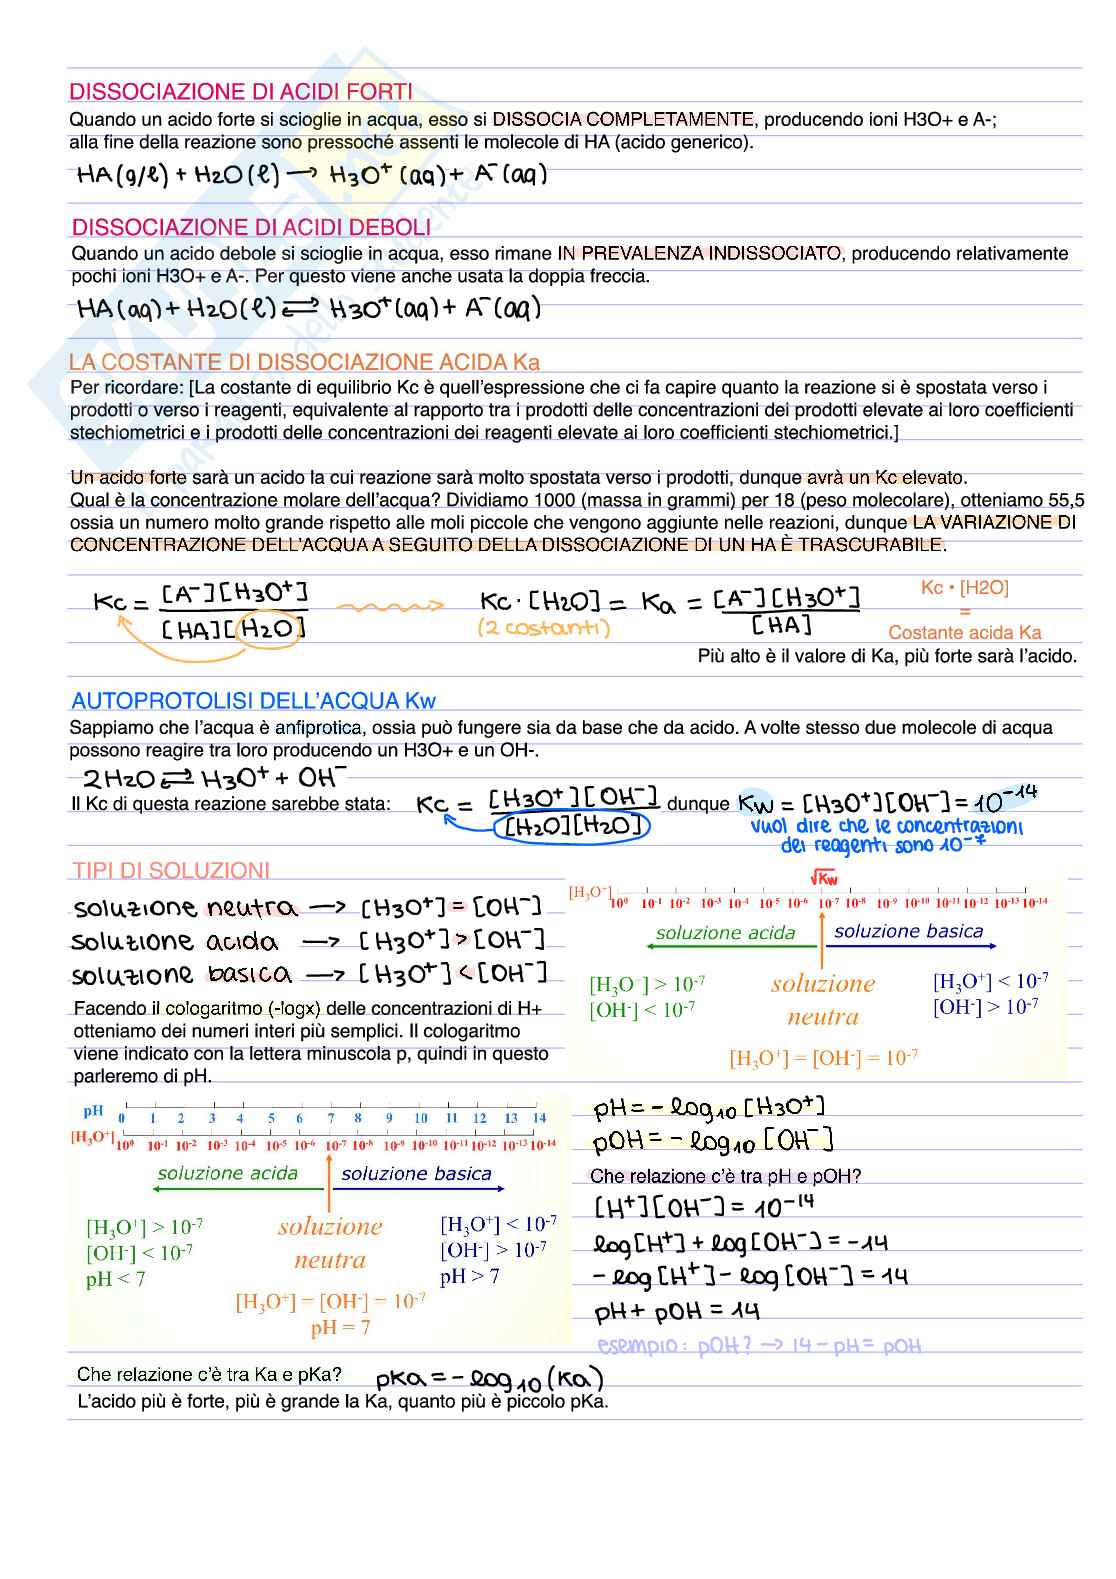 DISSOCIAZIONE DI ACIDI FORTI
Quando un acido forte si scioglie in acqua, esso si DISSOCIA COMPLETAMENTE, producendo ioni H3O+ e A-;
alla fine della reazione sono pressoché assenti le molecole di HA (acido generico).
HA(g/l) + H2O(l) → H3O⁺(aq) + A⁻(aq)
DISSOCIAZIONE DI ACIDI DEBOLI
Quando un acido debole si scioglie in acqua, esso rimane IN PREVALENZA INDISSOCIATO, producendo relativamente
pochi ioni H3O+ e A-. Per questo viene anche usata la doppia freccia.
HA(aq) + H2O(l) ⇌ H3O⁺(aq) + A⁻(aq)
LA COSTANTE DI DISSOCIAZIONE ACIDA Ka
Per ricordare: [La costante di equilibrio Kc è quell'espressione che ci fa capire quanto la reazione si è spostata verso i
prodotti o verso i reagenti, equivalente al rapporto tra i prodotti delle concentrazioni dei prodotti elevate ai loro coefficienti
stechiometrici e i prodotti delle concentrazioni dei reagenti elevate ai loro coefficienti stechiometrici.]
Un acido forte sarà un acido la cui reazione sarà molto spostata verso i prodotti, dunque avrà un Kc elevato.
Qual è la concentrazione molare dell'acqua? Dividiamo 1000 (massa in grammi) per 18 (peso molecolare), otteniamo 55,5
ossia un numero molto grande rispetto alle moli piccole che vengono aggiunte nelle reazioni, dunque LA VARIAZIONE DI
CONCENTRAZIONE DELL'ACQUA A SEGUITO DELLA DISSOCIAZIONE DI UN HA È TRASCURABILE.
Kc = [A⁻][H3O⁺] / [HA][H2O]
Kc · [H2O] = Ka = [A⁻][H3O⁺] / [HA]
(2 costanti)
Kc • [H2O]
=
Costante acida Ka
Più alto è il valore di Ka, più forte sarà l'acido.
AUTOPROTOLISI DELL'ACQUA Kw
Sappiamo che l'acqua è anfiprotica, ossia può fungere sia da base che da acido. A volte stesso due molecole di acqua
possono reagire tra loro producendo un H3O+ e un OH-.
2H2O ⇌ H3O⁺ + OH⁻
Il Kc di questa reazione sarebbe stata: Kc = [H3O⁺][OH⁻] / [H2O][H2O] dunque Kw = [H3O⁺][OH⁻] = 10⁻¹⁴
vuol dire che le concentrazioni
dei reagenti sono 10⁻⁷
TIPI DI SOLUZIONI
soluzione neutra → [H3O⁺] = [OH⁻]
soluzione acida → [H3O⁺] > [OH⁻]
soluzione basica → [H3O⁺] < [OH⁻]
Facendo il cologaritmo (-logx) delle concentrazioni di H+
otteniamo dei numeri interi più semplici. Il cologaritmo
viene indicato con la lettera minuscola p, quindi in questo
parleremo di pH.
√Kw
[H₃O⁺] 10⁰ 10⁻¹ 10⁻² 10⁻³ 10⁻⁴ 10⁻⁵ 10⁻⁶ 10⁻⁷ 10⁻⁸ 10⁻⁹ 10⁻¹⁰ 10⁻¹¹ 10⁻¹² 10⁻¹³ 10⁻¹⁴
soluzione acida soluzione basica
[H₃O⁺] > 10⁻⁷
[OH⁻] < 10⁻⁷
soluzione
neutra
[H₃O⁺] < 10⁻⁷
[OH⁻] > 10⁻⁷
[H₃O⁺] = [OH⁻] = 10⁻⁷
pH 0 1 2 3 4 5 6 7 8 9 10 11 12 13 14
[H₃O⁺] 10⁰ 10⁻¹ 10⁻² 10⁻³ 10⁻⁴ 10⁻⁵ 10⁻⁶ 10⁻⁷ 10⁻⁸ 10⁻⁹ 10⁻¹⁰ 10⁻¹¹ 10⁻¹² 10⁻¹³ 10⁻¹⁴
soluzione acida soluzione basica
[H₃O⁺] > 10⁻⁷
[OH⁻] < 10⁻⁷
pH < 7
soluzione
neutra
[H₃O⁺] < 10⁻⁷
[OH⁻] > 10⁻⁷
pH > 7
[H₃O⁺] = [OH⁻] = 10⁻⁷
pH = 7
pH = - log10 [H3O⁺]
pOH = - log10 [OH⁻]
Che relazione c'è tra pH e pOH?
[H⁺][OH⁻] = 10⁻¹⁴
log[H⁺] + log[OH⁻] = -14
- log[H⁺] - log[OH⁻] = 14
pH + pOH = 14
esempio: pOH? → 14 - pH = pOH
Che relazione c'è tra Ka e pKa? pKa = - log10 (Ka)
L'acido più è forte, più è grande la Ka, quanto più è piccolo pKa.